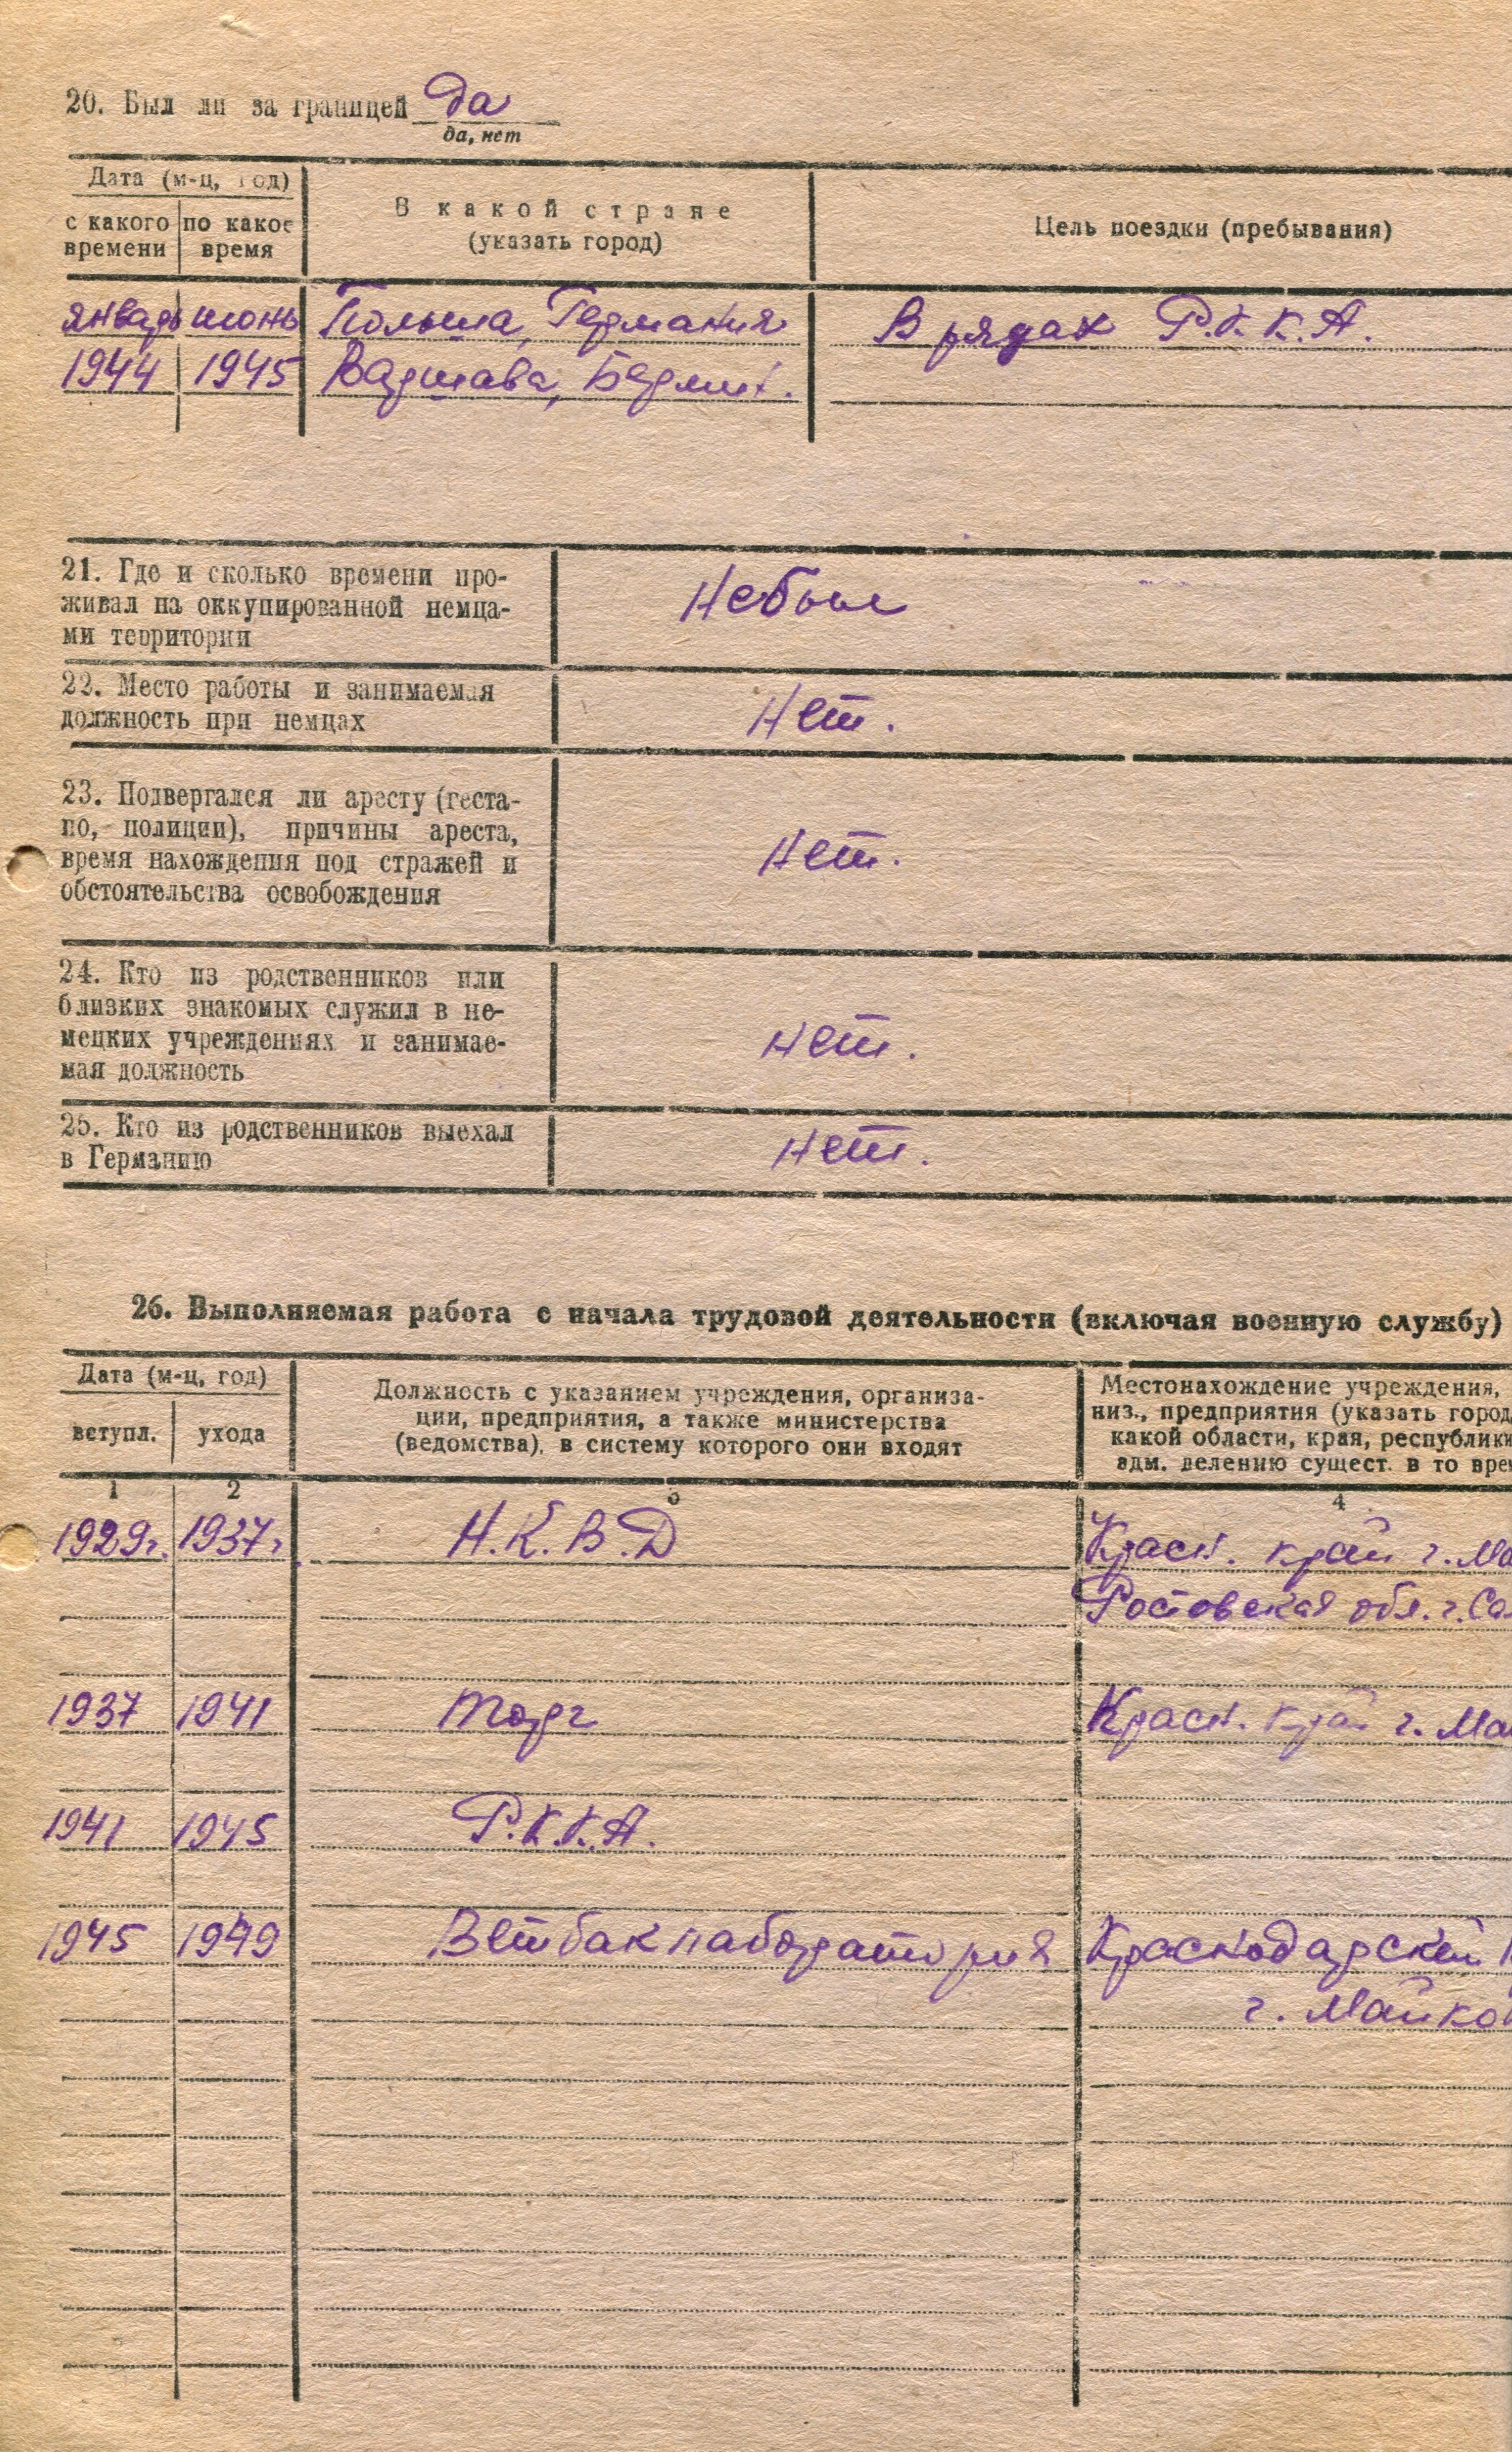 20. Был ли за границей да
да, нет
Дата (м-ц, год)
с какого времени
по какое время
В какой стране
(указать город)
Цель поездки (пребывания)
январь июнь Польша, Германия В рядах Р.К.К.А.
1944 1945 Варшава, Берлин.
21. Где и сколько времени про-
живал на оккупированной немца-
ми территории
Небыл
22. Место работы и занимаемая
должность при немцах
Нет.
23. Подвергался ли аресту (геста-
по, полиции), причины ареста,
время нахождения под стражей и
обстоятельства освобождения
Нет.
24. Кто из родственников или
близких знакомых служил в не-
мецких учреждениях и занимае-
мая должность
Нет.
25. Кто из родственников выехал
в Германию
Нет.
26. Выполняемая работа с начала трудовой деятельности (включая военную службу)
Дата (м-ц, год)
вступл. ухода
Должность с указанием учреждения, организа-
ции, предприятия, а также министерства
(ведомства), в систему которого они входят
Местонахождение учреждения,
низ., предприятия (указать город,
какой области, края, республики
адм. делению сущест. в то вре
1 2 3 4
1929г. 1937г. Н.К.В.Д Красн. край г. Ма
Ростовская обл. г. Сал
1937 1941 торг Красн. край г. Май
1941 1945 Р.К.К.А.
1945 1949 Ветбаклаборатория Краснодарский к
г. Майкоп